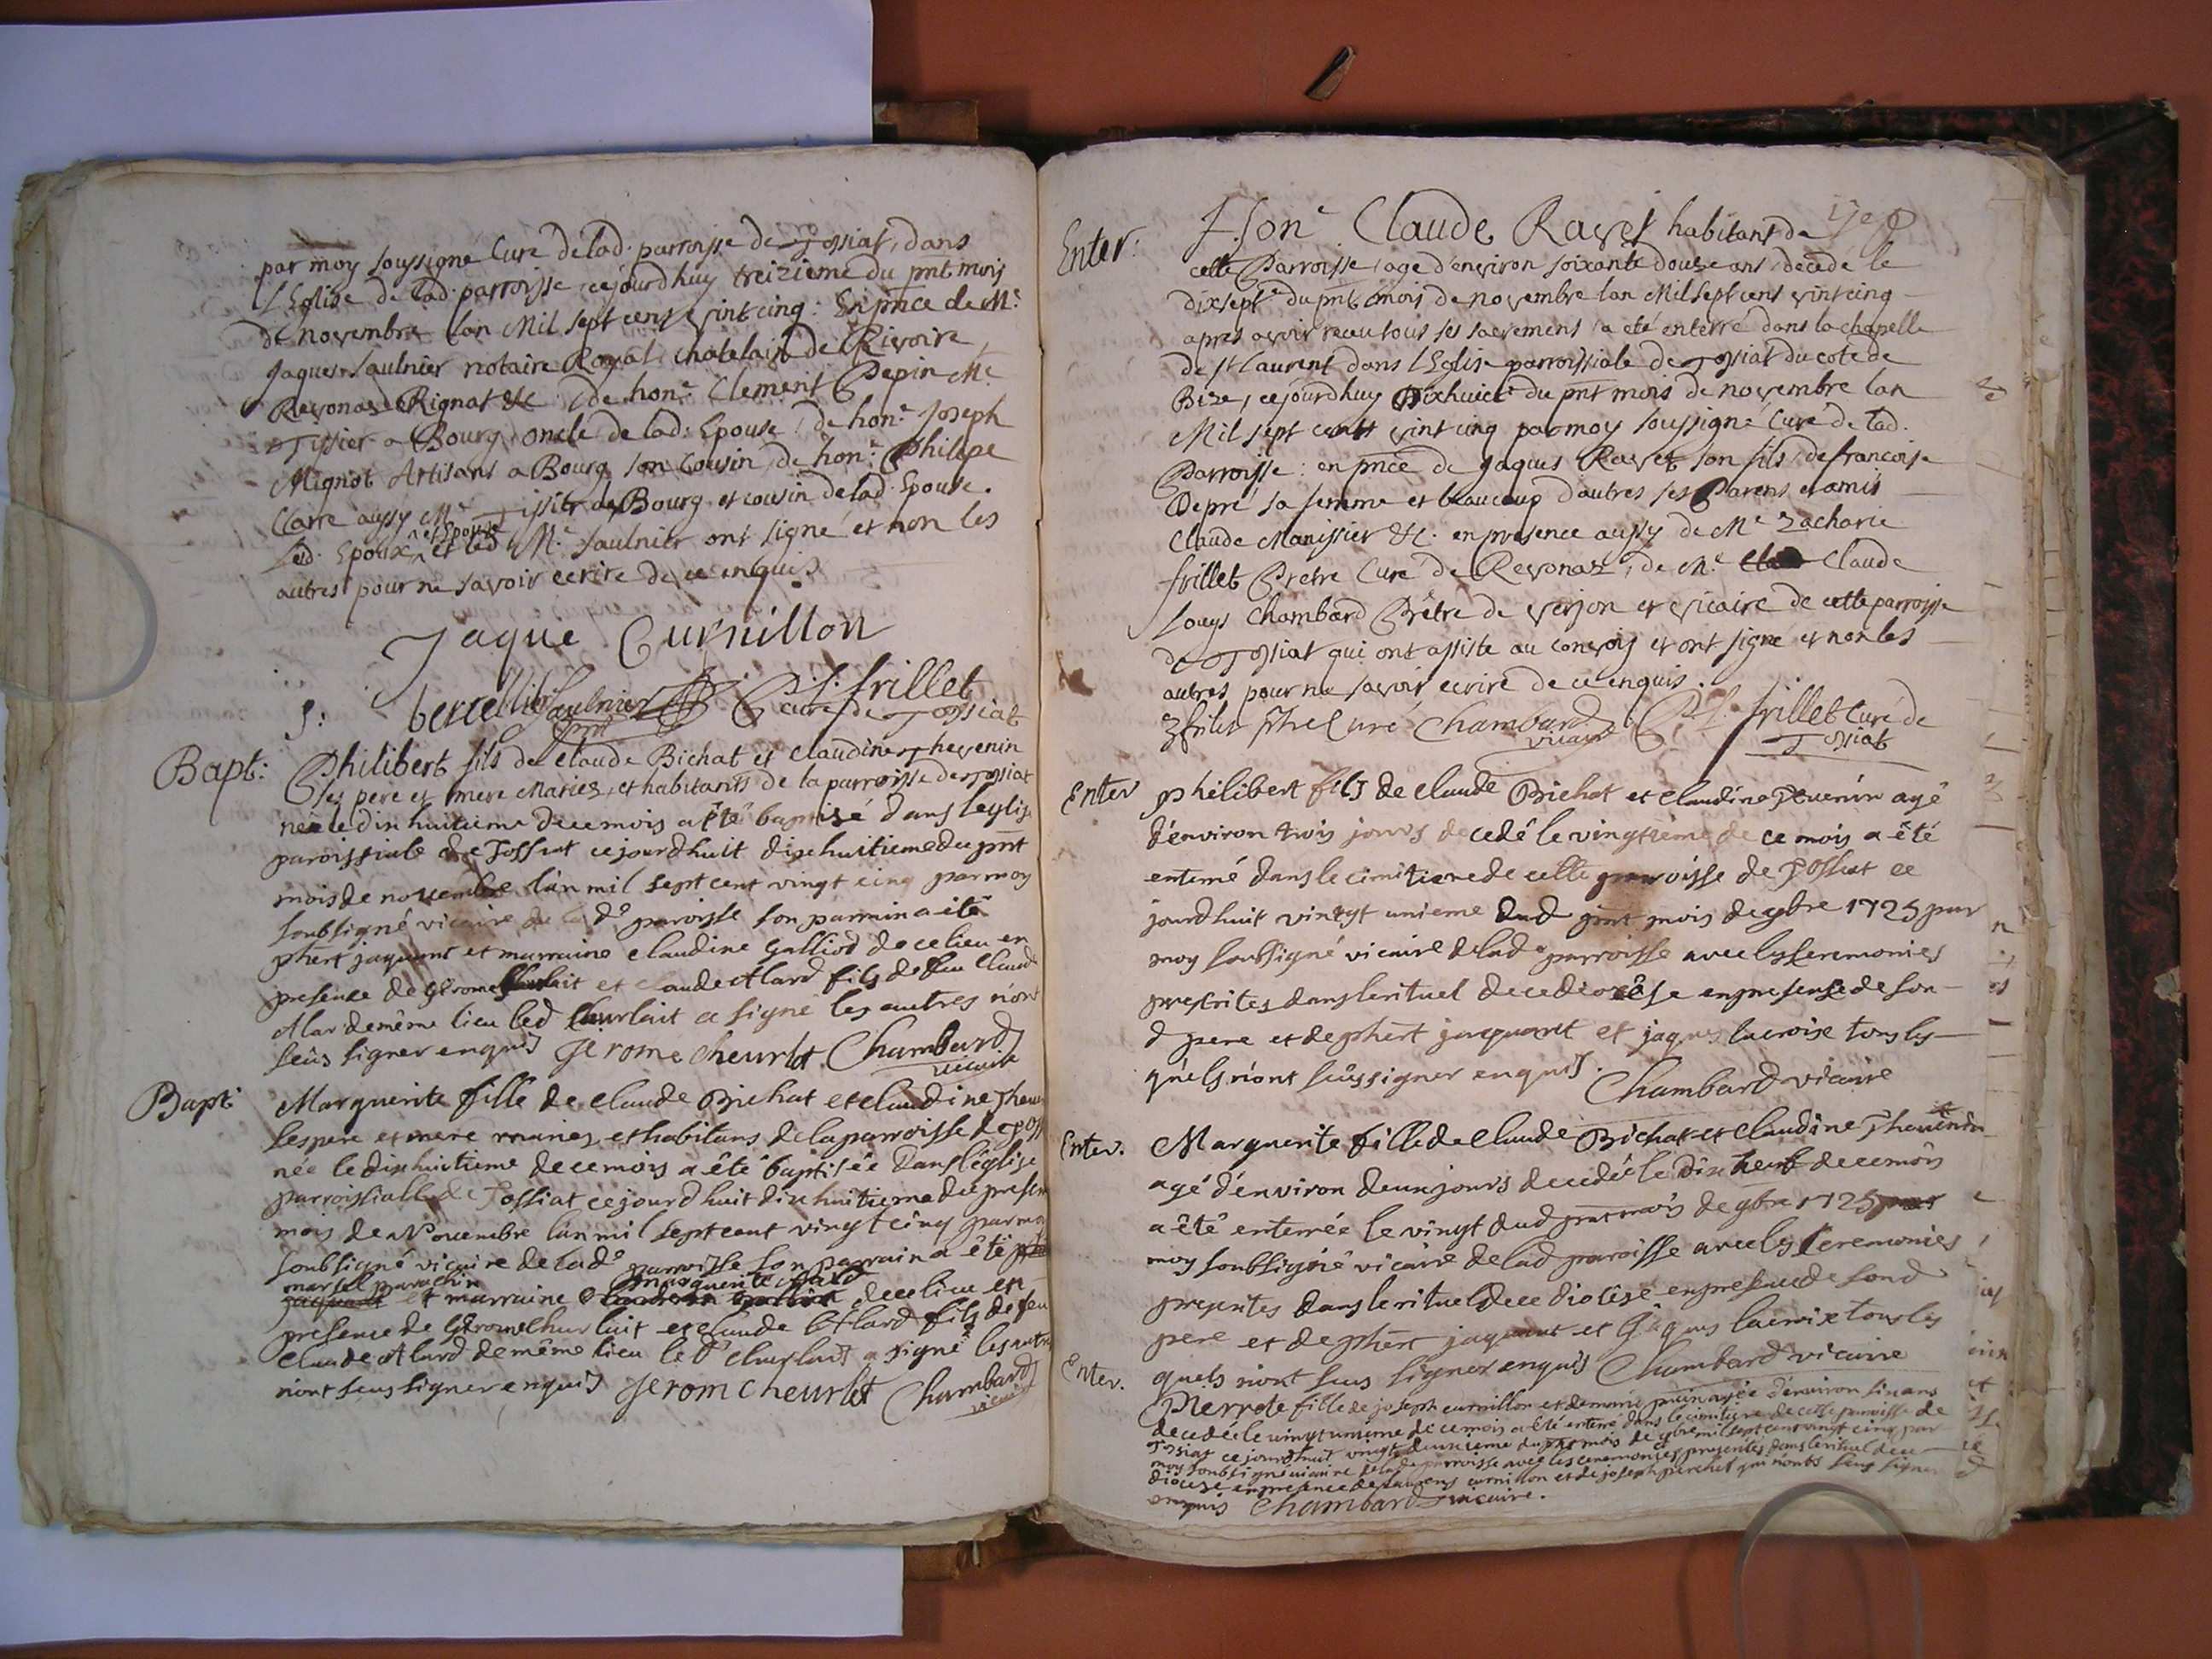 par moy soussigné Curé de lad. parroisse de Tossiat, dans
l'Eglise de lad. parroisse, cejourdhuy treizieme du pnt mois
de novembre lan Mil sept cent vint cinq : En pnce de Me.
Jaques Saulnier notaire Royal, chatelain de Rivoire,
Revonas, Rignat &c. de hone. Clement Pepin Me.
Tissier a Bourg, oncle de lad. Epouse, de hone. Joseph
Mignot Artisant a Bourg son cousin, de hone. Philipe
Clare aussy Me. Tissier de Bourg et cousin de lad. Epouse.
Led. Epoux, et Epouse et led. Me. Saulnier ont signé et non les
autres pour ne savoir ecrire de ce enquis
Jaque Curnillon
Saulnier P. J. frillet
curé de Tossiat
Bapt: Philibert fils de Claude Bichat et Claudine Thevenin
ses pere et mere Mariez, et habitants de la parroisse de Tossiat
née le dix huitieme de ce mois a été baptisé dans leglise
paroissiale de Tossiat ce jourdhuit dixhuitieme du pnt
mois de novembre lan mil sept cent vingt cinq par moy
soubsigné vicaire de lade paroisse son parrain a été
phert jaquant et marraine claudine Galliod de ce lieu en
presence de Gerome Churlait et claude Alard fils de feu Claude
Alar de même lieu led Churlait a signé les autres n'ont
seûs signer enquis Jerome cheurlet Chambard
vicaire
Bapt: Marguerite fille de Claude Bichat et Claudine Theve
ses pere et mere mariez et habitans de la parroisse de Toss
née le dixhuitieme de ce mois a été baptisée dans l'église
parroissialle de Tossiat ce jourdhuit dixhuitieme du present
mois de Novembre lan mil sept cent vingt cinq par moy
soubsigné vicaire de lade parroisse son parrain a été
marsel
marguerite Alard
et marraine de ce lieu en
presence de Gerome Churlait et claude Allard fils de feu
Claude Alard de même lieu led Churlait a signé les autres
n'ont seus signer enquis Jerom Cheurlet Chambard
vicaire
Enter: Hone Claude Ravet habitant de
cette Parroisse, agé d'environ soixante douze ans, decedé le
dixsepte du pnt mois de novembre lan Mil sept cent vint cinq
apres avoir receu tous ses sacrements, a eté enterré dans la chapelle
de st Laurent dans l'Eglise parroissiale de Tossiat du coté de
Bize, cejourdhuy dixhuicte du pnt mois de novembre lan
Mil sept cent vint cinq par moy soussigné Curé de lad.
Parroisse : en pnce de Jaques Ravet son fils, de francoise
Depré sa femme et beaucoup d'autres ses Parens et amis
Claude Manissier &c. en presence aussy de Me Zacharie
frillet Pretre Curé de Revonas, de Me Claude
Louys Chambard Prêtre de Verjon et vicaire de cette parroisse
de Tossiat qui ont assisté au convoy et ont signé et non les
autres pour ne savoir ecrire de ce enquis.
Curé Chambard P. J. frillet Curé de
vicaire Tossiat
Enter philibert fils de claude Bichat et claudine Tevenin agé
d'environ trois jours decedé le vingtième de ce mois a été
enterré dans le cimitiere de cette parroisse de Tossiat ce
jourdhuit vingt unieme dud pnt mois de 9bre 1725 par
moy soubsigné vicaire de lad parroisse avec les ceremonies
prescrites dans le rituel de ce diocêse en presense de son
d pere et de phert jaquant et jaques lacroise tous les
quels n'ont seûs signer enquis. Chambard vicaire
Enter. Marguerite fille de Claude Bichat et Claudine Thevenin
agé d'environ deux jours decedée le dix neuf de ce mois
a été enterrée le vingt dud pnt mois de 9bre 1725 par
moy soubsigné vicaire de lad paroisse avec les ceremonies
prescrites dans le rituel de ce diocêse en presence de sond
pere et de phert jaquant et Jaques lacroix tous les
quels n'ont seus signer enquis Chambard vicaire
Enter. Pierrete fille de joseph curnillon et de marie agée d'environ six ans
decedée le vingt unieme de ce mois a été enterré dans le cimitiere de cette parroisse de
Tossiat ce jourdhuit vingt deuxieme du pnt mois de 9bre mil sept cent vingt cinq par
moy soubsigné vicaire de lade parroisse avec les ceremonies prescrites dans le rituel de ce
diocese en presence de laurens curnillon et de joseph perchet qui n'onts seus signer
enquis Chambard vicaire.